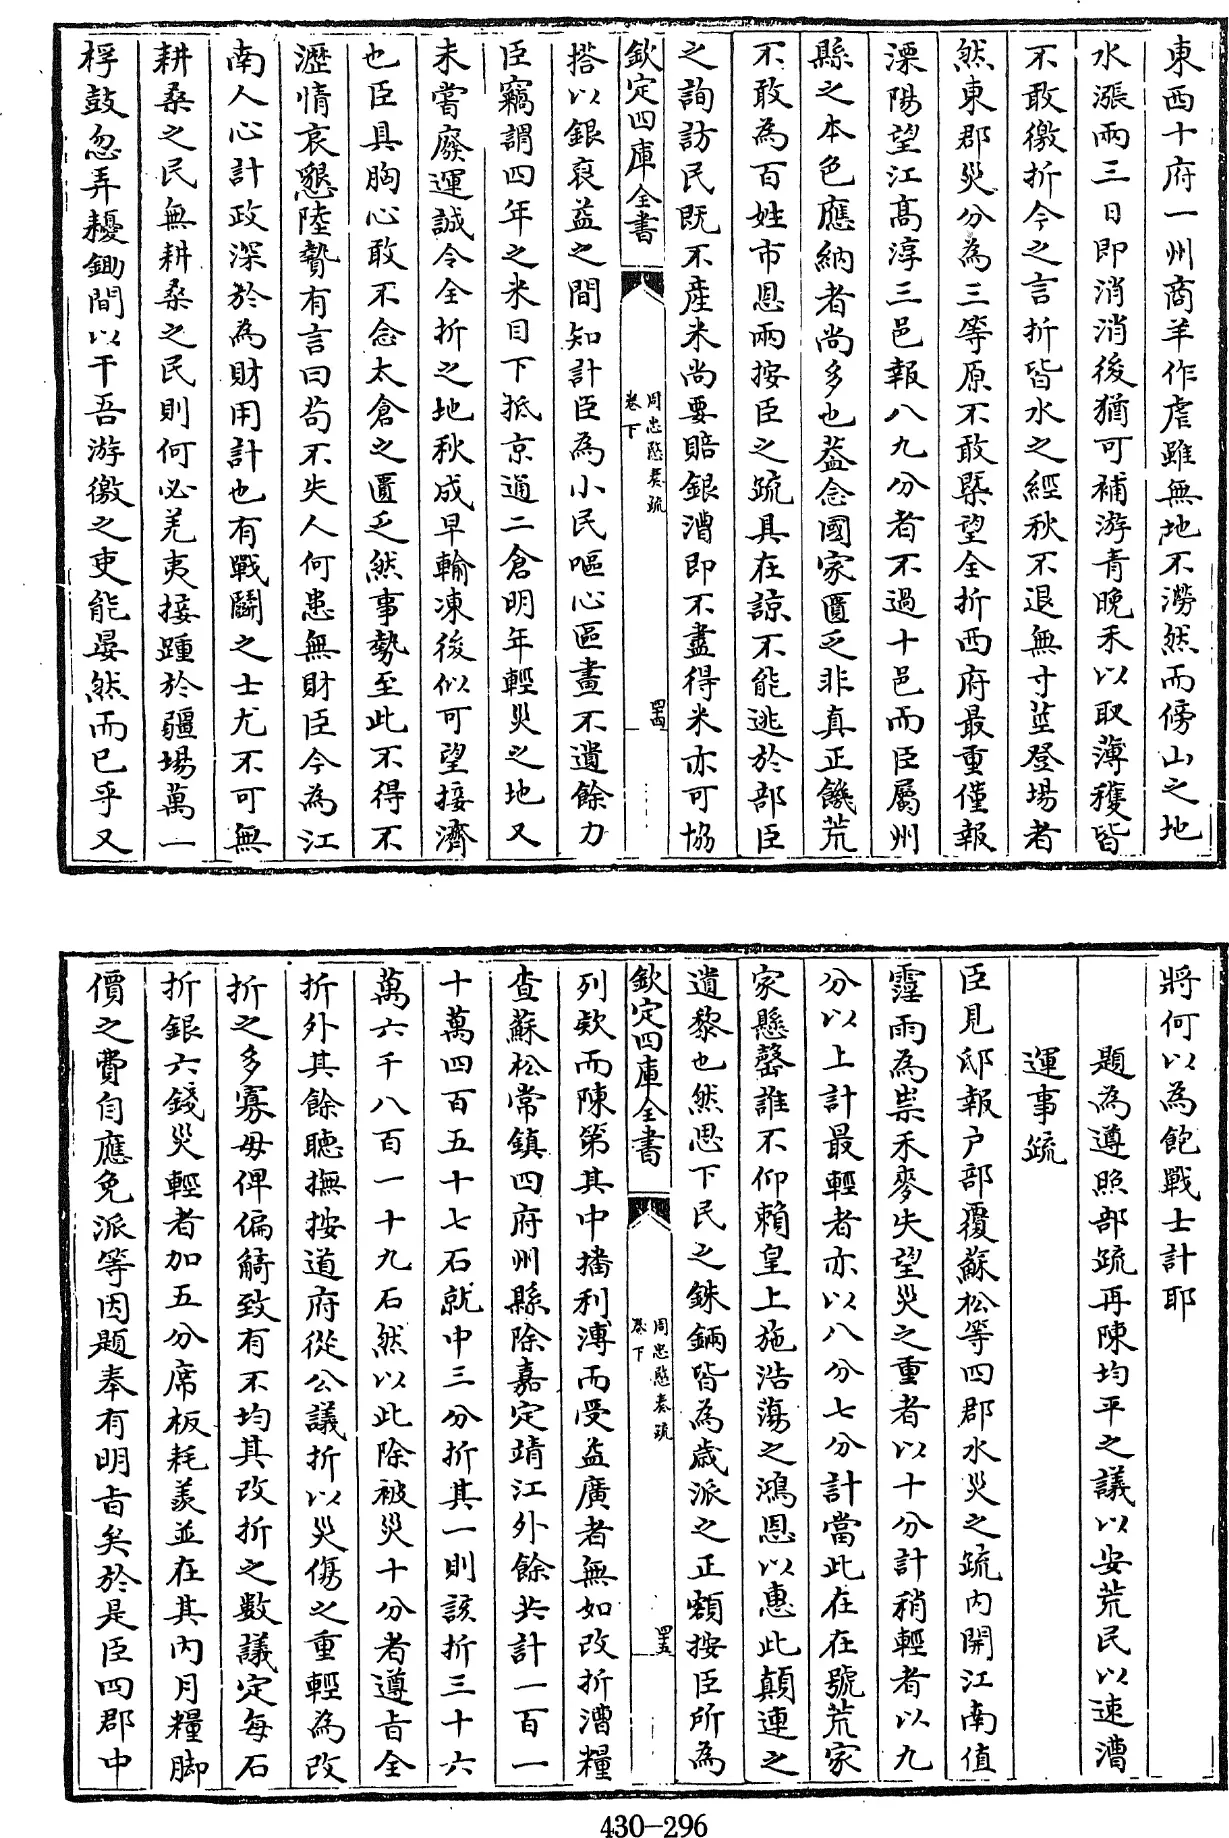 東西十府一州商羊作虐雖無地不澇然而傍山之地
水漲兩三日即消消後猶可補游青晚禾以取薄穫皆
不敢徼折今之言折皆水之經秋不退無寸莖登塲者
然東郡災分為三等原不敢槩望全折西府最重僅報
溧陽望江髙淳三邑報八九分者不過十邑而臣屬州
縣之本色應納者尚多也葢念國家匱乏非真正饑荒
不敢為百姓市恩兩按臣之疏具在諒不能逃於部臣
之詢訪民既不産米尚要賠銀漕即不盡得米亦可協
欽定四庫全書
周忠愍奏疏
卷下
四四
搭以銀裒益之間知計臣為小民嘔心區畫不遺餘力
臣竊謂四年之米目下抵京通二倉明年輕災之地又
未嘗廢運誠令全折之地秋成早輸凍後似可望接濟
也臣具胸心敢不念太倉之匱乏然事勢至此不得不
瀝情哀懇陸贄有言曰茍不失人何患無財臣今為江
南人心計政深於為財用計也有戰鬭之士尤不可無
耕桑之民無耕桑之民則何必羌夷接踵於疆場萬一
桴鼓忽弄耰鋤間以干吾游徼之吏能晏然而已乎又
將何以為飽戰士計耶
題為遵照部疏再陳均平之議以安荒民以速漕
運事疏
臣見邸報户部覆蘇松等四郡水災之疏内開江南值
霪雨為祟禾麥失望災之重者以十分計稍輕者以九
分以上計最輕者亦以八分七分計當此在在號荒家
家懸罄誰不仰賴皇上施浩蕩之鴻恩以惠此顛連之
遺黎也然思下民之銖鎘皆為歳派之正額按臣所為
欽定四庫全書
周忠愍奏疏
卷下
四五
列欵而陳第其中播利溥而受益廣者無如改折漕糧
查蘇松常鎮四府州縣除嘉定靖江外餘共計一百一
十萬四百五十七石就中三分折其一則該折三十六
萬六千八百一十九石然以此除被災十分者遵㫖全
折外其餘聽撫按道府從公議折以災傷之重輕為改
折之多寡毋俾偏觭致有不均其改折之數議定每石
折銀六錢災輕者加五分席板耗羨並在其内月糧脚
價之費自應免派等因題奉有明㫖矣於是臣四郡中
430-296